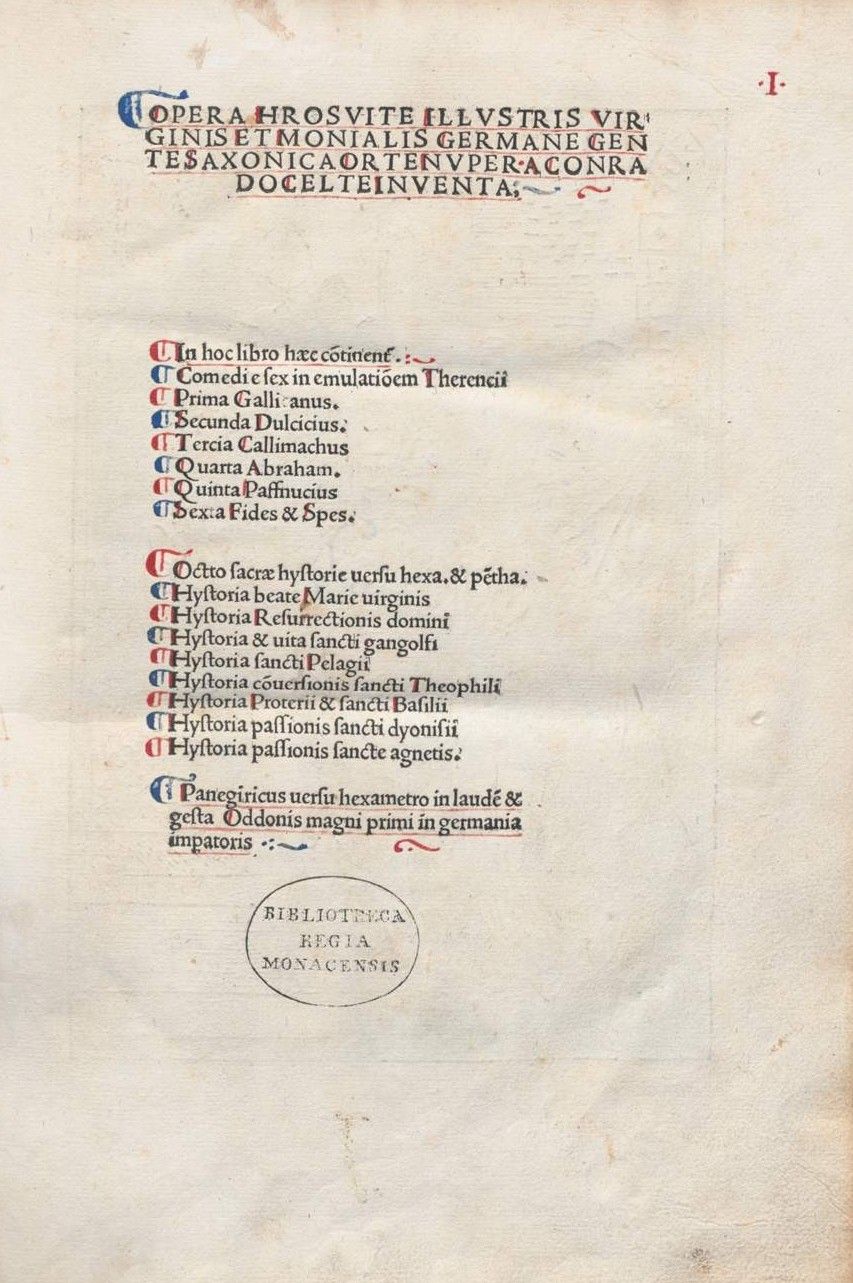 ·I·
OPERA HROSVITE ILLVSTRIS VIR
GINIS ET MONIALIS GERMANE GEN
TE SAXONICA ORTE NVPER A CONRA
DO CELTE INVENTA.
In hoc libro hæc cōtinent᷑.
Comedie sex in emulatiōem Therencii
Prima Gallicanus.
Secunda Dulcicius.
Tercia Callimachus
Quarta Abraham.
Quinta Paffnucius
Sexta Fides & Spes.
Octto sacræ hystorie uersu hexa. & pētha.
Hystoria beate Marie uirginis
Hystoria Resurrectionis domini
Hystoria & uita sancti gangolfi
Hystoria sancti Pelagii
Hystoria cōuersionis sancti Theophili
Hystoria Proterii & sancti Basilii
Hystoria passionis sancti dyonisii
Hystoria passionis sancte agnetis.
Panegiricus uersu hexametro in laudē &
gesta Oddonis magni primi in germania
imꝑatoris
BIBLIOTHECA
REGIA
MONACENSIS